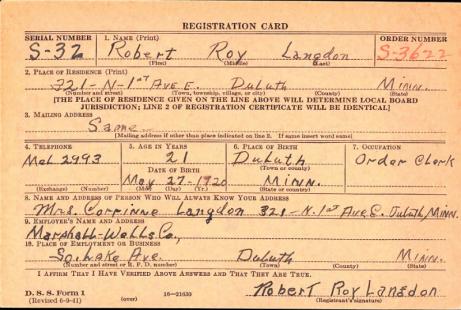 REGISTRATION CARD
SERIAL NUMBER 1. NAME (Print) ORDER NUMBER
S-32 Robert Roy Langdon S-3622
(First) (Middle) (Last)
2. PLACE OF RESIDENCE (Print)
321-N-1st AVE E. DuLuth Minn.
(Number and street) (Town, township, village, or city) (County) (State)
[THE PLACE OF RESIDENCE GIVEN ON THE LINE ABOVE WILL DETERMINE LOCAL BOARD
JURISDICTION; LINE 2 OF REGISTRATION CERTIFICATE WILL BE IDENTICAL]
3. MAILING ADDRESS
Same
[Mailing address if other than place indicated on line 2. If same insert word same]
4. TELEPHONE 5. AGE IN YEARS 6. PLACE OF BIRTH 7. OCCUPATION
Mel 2993 21 DuLuth Order Clerk
DATE OF BIRTH (Town or county)
May 27-1920 Minn.
(Exchange) (Number) (Mo.) (Day) (Yr.) (State or country)
8. NAME AND ADDRESS OF PERSON WHO WILL ALWAYS KNOW YOUR ADDRESS
Mrs. Corrinne Langdon 321-N.1st Ave E. Duluth, Minn.
9. EMPLOYER'S NAME AND ADDRESS
Marshall-Wells Co,
10. PLACE OF EMPLOYMENT OR BUSINESS
So. Lake Ave. Duluth Minn.
(Number and street or R. F. D. number) (Town) (County) (State)
I AFFIRM THAT I HAVE VERIFIED ABOVE ANSWERS AND THAT THEY ARE TRUE.
D. S. S. Form 1
(Revised 6-9-41) (over) 16—21630 Robert Roy Langdon
(Registrant's signature)